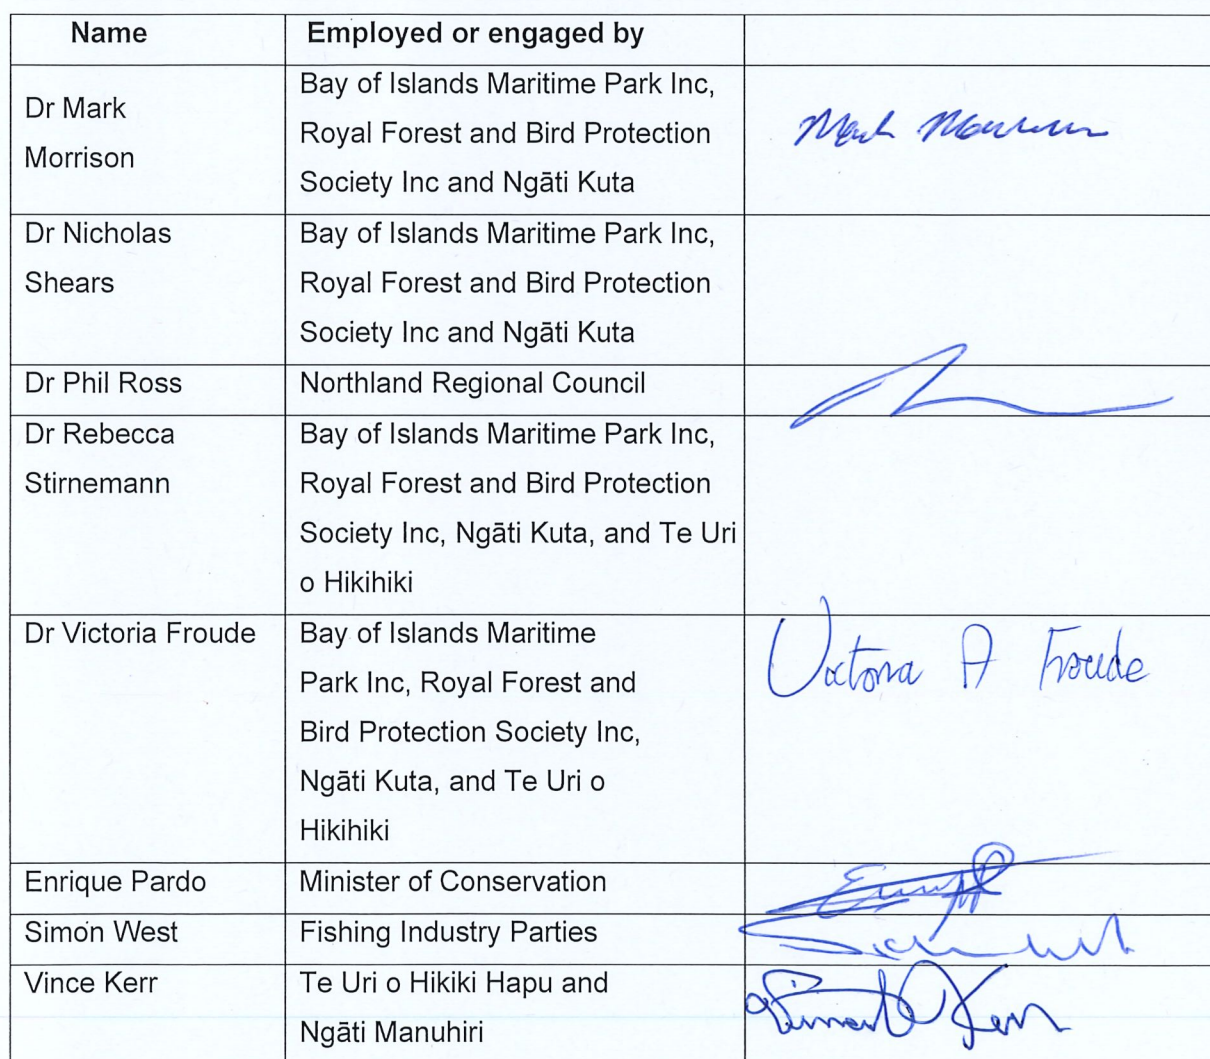 Name
Employed or engaged by
Dr Mark
Morrison
Bay of Islands Maritime Park Inc,
Royal Forest and Bird Protection
Society Inc and Ngāti Kuta
Mark Morrison
Dr Nicholas
Shears
Bay of Islands Maritime Park Inc,
Royal Forest and Bird Protection
Society Inc and Ngāti Kuta
Dr Phil Ross
Northland Regional Council
Dr Rebecca
Stirnemann
Bay of Islands Maritime Park Inc,
Royal Forest and Bird Protection
Society Inc, Ngāti Kuta, and Te Uri
o Hikihiki
Dr Victoria Froude
Bay of Islands Maritime
Park Inc, Royal Forest and
Bird Protection Society Inc,
Ngāti Kuta, and Te Uri o
Hikihiki
Victoria A Froude
Enrique Pardo
Minister of Conservation
Simon West
Fishing Industry Parties
Vince Kerr
Te Uri o Hikiki Hapu and
Ngāti Manuhiri